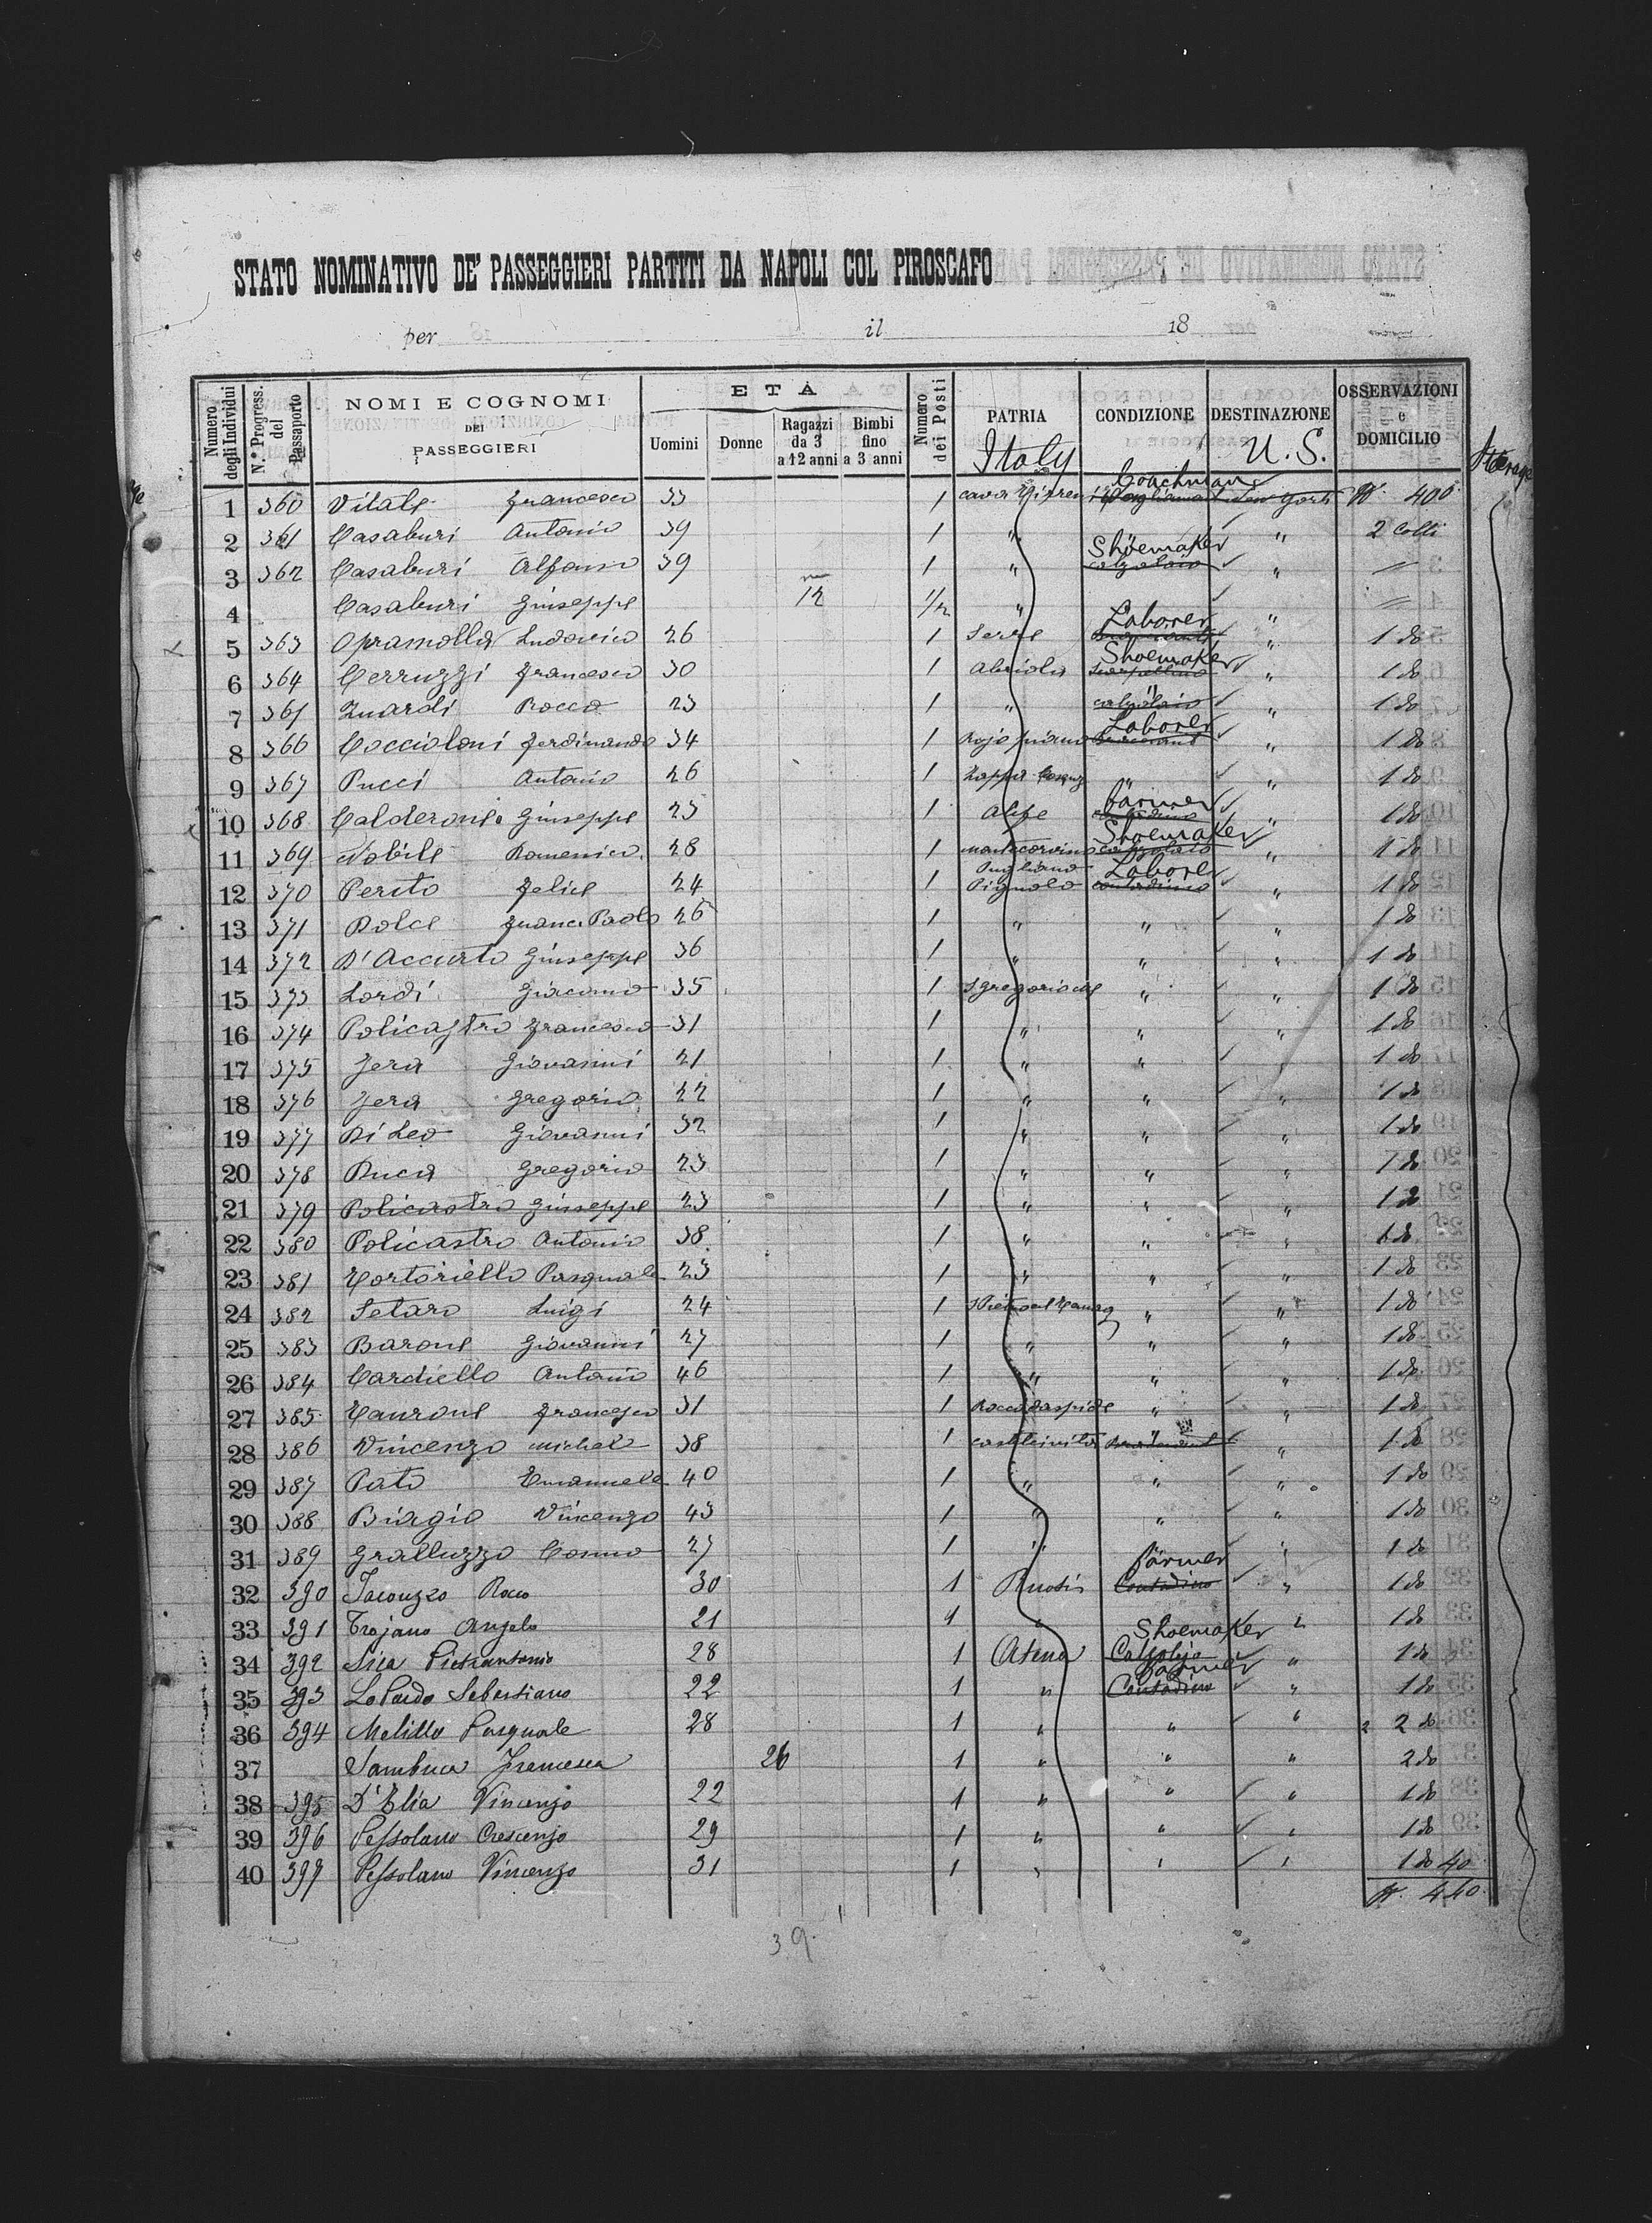 STATO NOMINATIVO DE' PASSEGGIERI PARTITI DA NAPOLI COL PIROSCAFO
per il 18
Numero degli Individui N.o Progress. del Passaporto NOMI E COGNOMI DEI PASSEGGIERI ETÀ Uomini Donne Ragazzi da 3 a 12 anni Bimbi fino a 3 anni Numero dei Posti PATRIA CONDIZIONE DESTINAZIONE OSSERVAZIONI e DOMICILIO
Italy U. S. Steerage
Coachman
1 360 Vitale Francesco 33 1 Cava Tirreni New York 400
2 361 Casaburi Antonio 39 1 " " 2 Colli
Shoemaker
3 362 Casaburi Alfonso 39 1 " calzolaio "
4 Casaburi Giuseppe 12 1/2 " "
Laborer
5 363 Opramolla Ludovico 26 1 Serre " 1 do
Shoemaker
6 364 Cerruzzi Francesco 30 1 Abriola Scarpellino " 1 do
7 365 Zuardi Rocco 23 1 " calzolaio " 1 do
Laborer
8 366 Coccioloni Ferdinando 34 1 Rojo piano " 1 do
9 367 Pucci Antonio 26 1 " " 1 do
Farmer
10 368 Calderone Giuseppe 23 1 Alife contadino " 1 do
Shoemaker
11 369 Nobile Domenico 28 1 Montecorvino calzolaio " 1 do
Pugliano Laborer
12 370 Perito Felice 24 1 Pignola contadino " 1 do
13 371 Dolce Franc. Paolo 26 1 " " " 1 do
14 372 D'Accurto Giuseppe 36 1 " " " 1 do
15 373 Lordi Giacomo 35 1 S gregorio " " 1 do
16 374 Policastro Francesco 31 1 " " " 1 do
17 375 Jera Giovanni 21 1 " " " 1 do
18 376 Jera Gregorio 22 1 " " " 1 do
19 377 Di Leo Giovanni 32 1 " " " 1 do
20 378 Duca Gregorio 23 1 " " " 1 do
21 379 Policastro Giuseppe 23 1 " " " 1 do
22 380 Policastro Antonio 38 1 " " " 1 do
23 381 Tortoriello Pasquale 23 1 " " " 1 do
24 382 Setaro Luigi 24 1 S Pietro al Tanag " " 1 do
25 383 Barone Giovanni 27 1 " " " 1 do
26 384 Cardiello Antonio 46 1 " " " 1 do
27 385 Taurone Francesco 31 1 Roccadaspide " " 1 do
28 386 Vincenzo Michele 38 1 Castelcivita " 1 do
29 387 Pato Emanuele 40 1 " " " 1 do
30 388 Biagio Vincenzo 43 1 " " " 1 do
31 389 Gralluzzo Cosmo 27 1 " " 1 do
Farmer
32 390 Iacouzzo Rocco 30 1 Ruoti Contadino " 1 do
33 391 Trojano Angelo 21 1 " " 1 do
Shoemaker
34 392 Sica Pietrantonio 28 1 Atena Calzolajo " 1 do
Farmer
35 393 LoPardo Sebastiano 22 1 " Contadino " 1 do
36 394 Melillo Pasquale 28 1 " " " 2 2 do
37 Sambuca Francesca 26 1 " " " 2 do
38 395 D'Elia Vincenzo 22 1 " " " 1 do
39 396 Pessolano Crescenzo 29 1 " " " 1 do
40 397 Pessolano Vincenzo 31 1 " " " 1 do 40
440
39